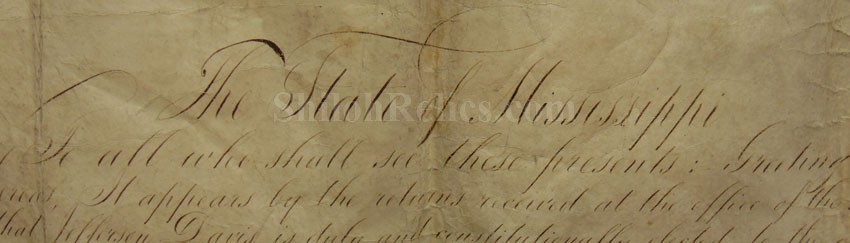 The State of Mississippi
ShilohRelics.com
To all who shall see these presents: Greeting
It appears by the returns received at the office of the
that Jefferson Davis is duly and constitutionally elected to the